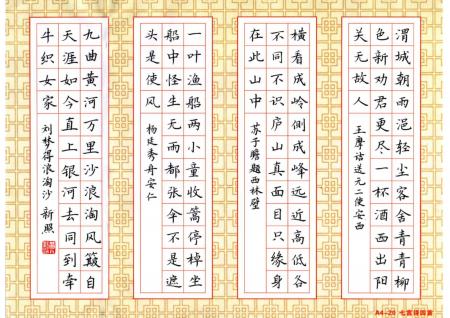 渭城朝雨浥轻尘客舍青青柳
色新劝君更尽一杯酒西出阳
关无故人
王摩诘送元二使安西
横看成岭侧成峰远近高低各
不同不识庐山真面目只缘身
在此山中
苏子瞻题西林壁
一叶渔船两小童收篙停棹坐
船中怪生无雨都张伞不是遮
头是使风
杨廷秀舟安仁
九曲黄河万里沙浪淘风簸自
天涯如今直上银河去同到牵
牛织女家
刘梦得浪淘沙 新照
A4-20 七言诗四首